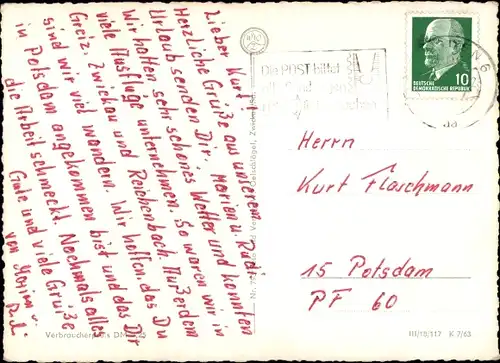 Lieber Kurt!
Herzliche Grüße aus unserem
Urlaub senden Dir Marion u. Rudi.
Wir hatten sehr schönes Wetter und konnten
viele Ausflüge unternehmen. So waren wir in
Greiz, Zwickau und Reichenbach. Außerdem
sind wir viel wandern. Wir hoffen das Du
in Potsdam angekommen bist und das Dir
die Arbeit schmeckt. Nochmals alles
Gute und viele Grüße
von Marion u.
Rudi
Verbraucherpreis DM
Die POST bittet
DEUTSCHE
DEMOKRATISCHE REPUBLIK
10
Herrn
Kurt Flaschmann
15 Potsdam
PF 60
III/18/117 K 7/63